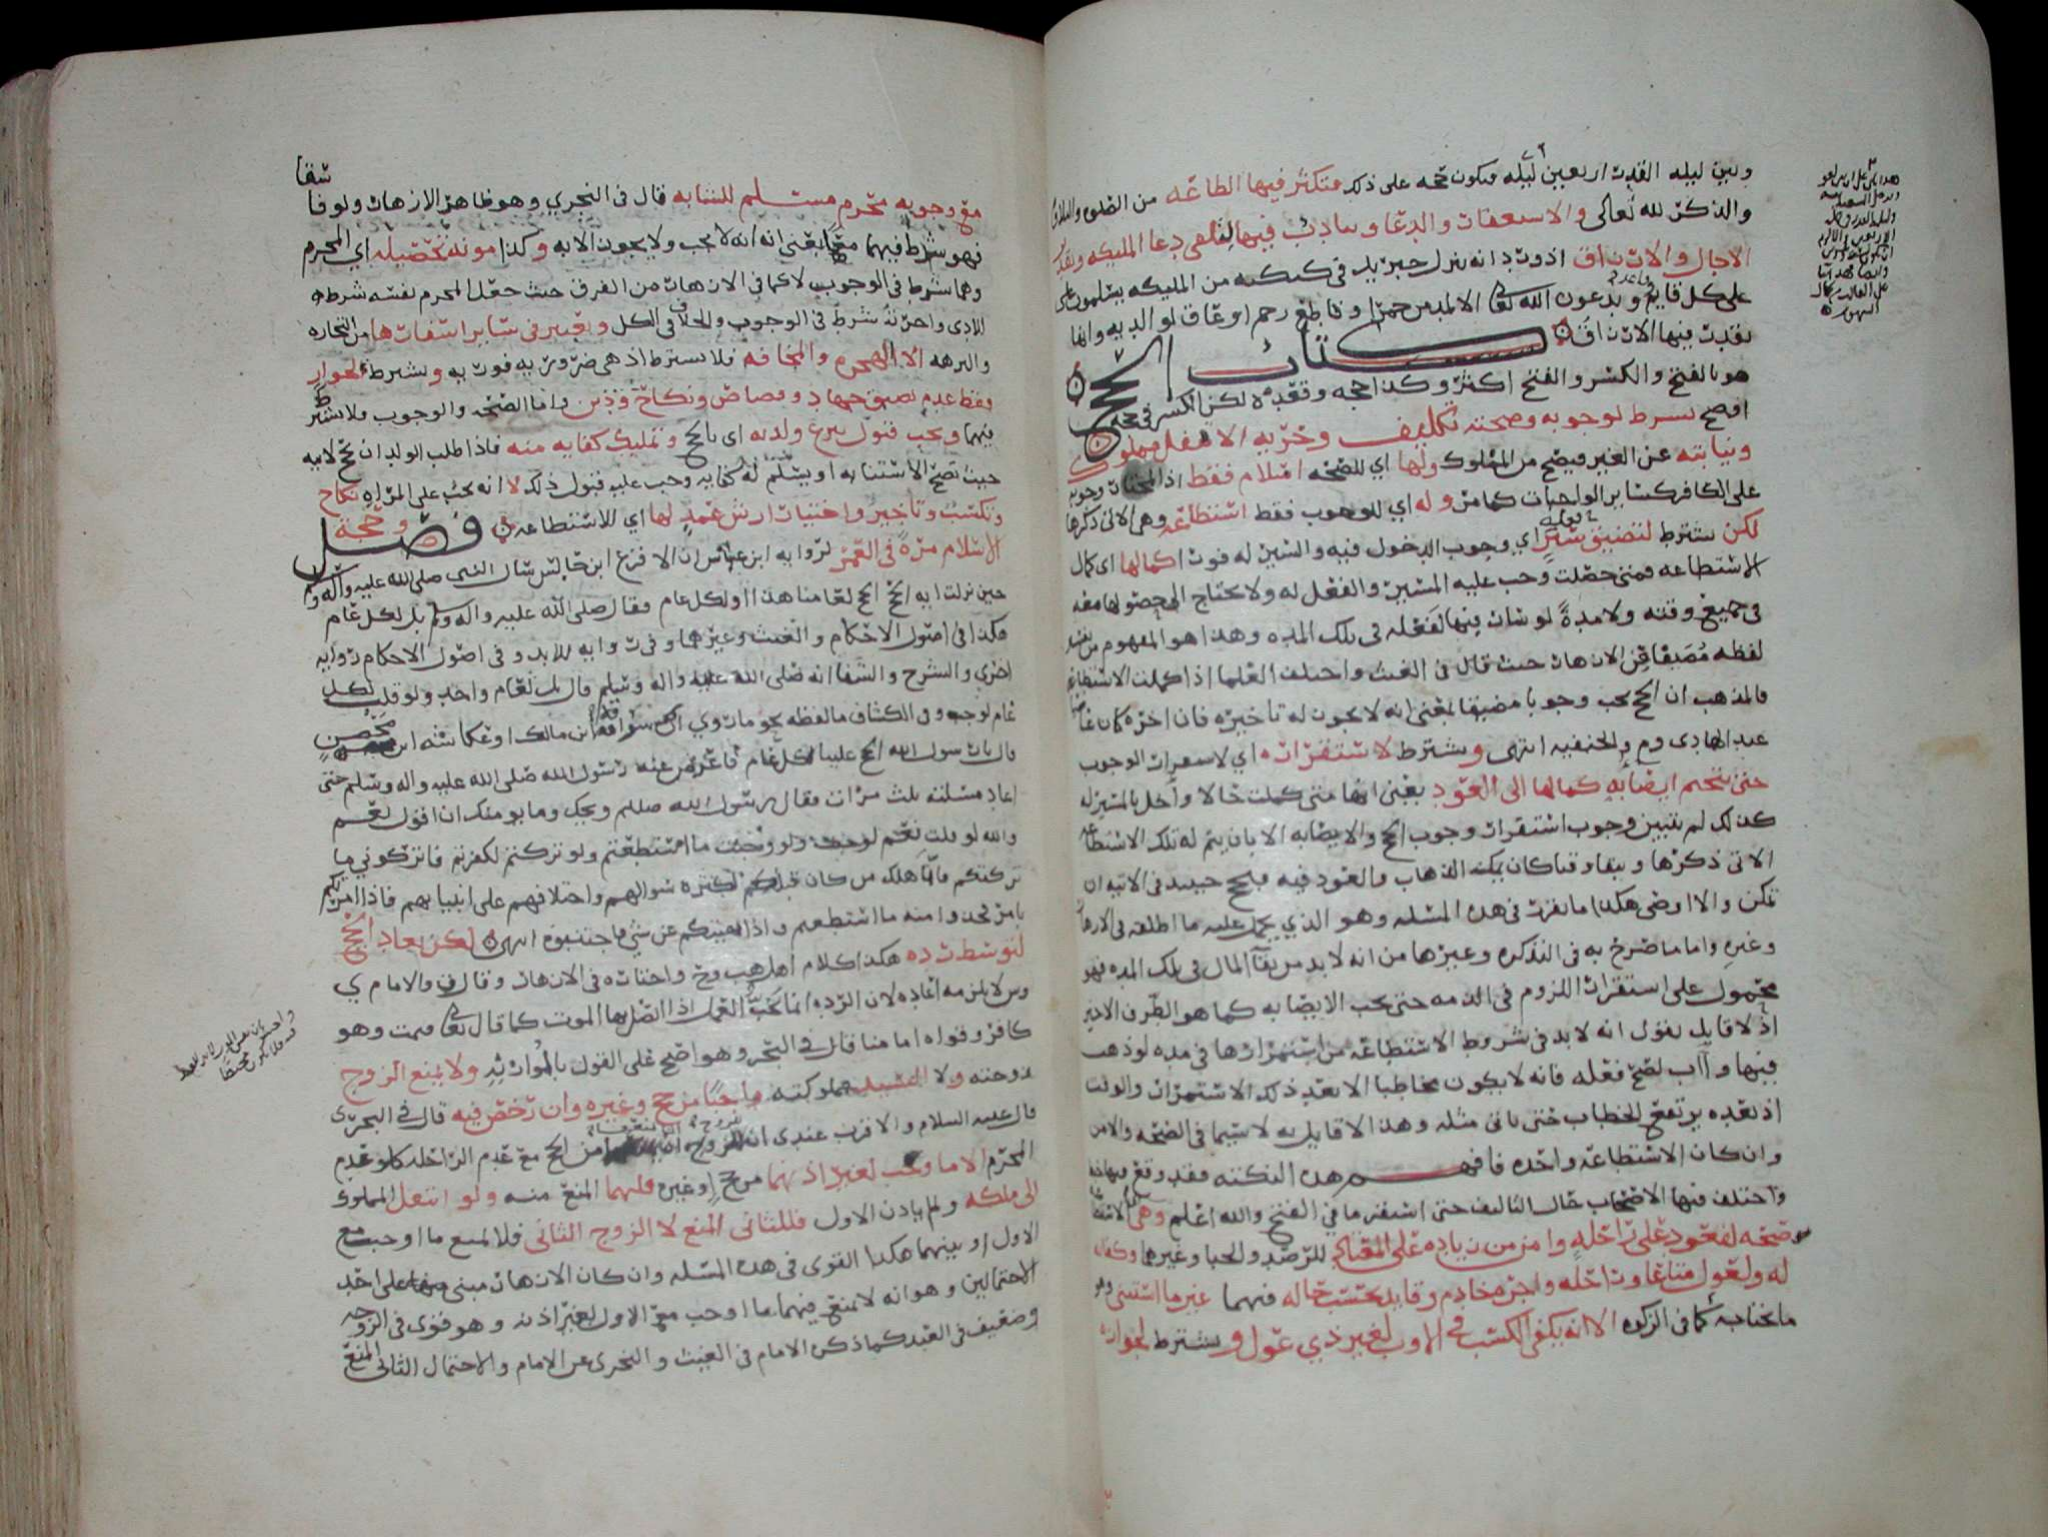 وبين ليله القدر اربعين ليله فيكون حجه على ذلك فتكثر فيها الطاعه من الصلوه والتلاوه
والذكر لله تعالى والاستغفار والدعا وينادب فيها لتلقي دعا المليكه وتقدير
الاجال والارزاق اذ ورد انه ينزل جبريل في كبكبه من المليكه يسلمون
على كل قايم وقاعد ويدعون الله تعالى الا لمدمن خمر او قاطع رحم او عاق لوالديه وانها
يقدر فيها الارزاق
كتاب الحج
هو بالفتح والكسر والفتح اكثر وكذا حجه وقعده لكن الكسر في حجه
افصح يشترط لوجوبه وصحته تكليف وحريه الا نفل مملوك
ونيابته عن الغير فيصح من المملوك ولها اي للصحه اسلام فقط اذ وجوبه
على الكافر كساير الواجبات كما مر وله اي للوجوب فقط استطاعه وهي الاتي ذكرها
لكن يشترط لتضييق سير اي وجوب الدخول فيه والسير له فور اكمالها اي كمال
الاستطاعه فمتى حصلت وجب عليه المسير والفعل له ولا يحتاج الى حصولها معه
في جميع وقته ولا مدة لو سار فيها لفعله في تلك المده وهذا هو المفهوم من
لفظه مضيقا في الازهار حيث قال في الغيث واختلف العلما اذا كملت الاستطاعه
فالمذهب ان الحج يجب وجوبا مضيقا بمعنى انه لا يجوز له تاخيره فان اخره كان عاصيا
عند الهادي وم والحنفيه انتهى ويشترط لاستقراره اي لاستمرار الوجوب
حتى يتحتم ايصا به كمالها الى العود يعني انها متى كملت حالا واخل بالمسير له
كذلك لم يتبين وجوب استقرار وجوب الحج والايصا به الا بان يتم له تلك الاستطاعه
الاتي ذكرها ويبقا وقتا كان يمكنه الذهاب والعود فيه فيحج حينيذ في الاتيه ان
تمكن والا اوصى هكذا ما تقرر في هذه المسله وهو الذي يحمل عليه ما اطلقه في الازهار
وغيره واما ما صرح به في التذكره وغيرها من انه لا بد من بقا المال في تلك المده فهو
محمول على استقرار اللزوم في الذمه حتى يجب الايصا به كما هو الطرف الاخير
اذ لا قايل يقول انه لا بد في شروط الاستطاعه من استمرارها في مده لو ذهب
فيها واآب لصح فعله فانه لا يكون مخاطبا الا بعد ذلك الاستمرار والوقت
اذ بعده يرتفع الخطاب حتى ياتي مثله وهذا لا قايل به لا سيما في الصحه والامن
وان كان الاستطاعه واحده فافهم هذه النكته فقد وقع فيها
واختلف فيها الاصحاب حال التاليف حتى استقر ما في الفتح والله اعلم وهي اي الاستطاعه
صحه لقعود على راحله وامن من زياده على المعتاد للرصد والجبا وغيرهما وكفايه
له ولعول متاعا وراحله واجره خادم وقايد بحسب حاله فيهما غير ما استثني وهو
ما يحتاجه كما في الزكوه الا انه يكفي الكسب في الاوب لغير ذي عول ويشترط لجوازه
شفا
مع وجوبه محرم مسلم للشابه قال في النجري وهو ظاهر الازهار ولوفا
فهو شرط فيهما معا يعني انه لا يجب ولا يجوز الا به وكذا مونه تحصيله اي المحرم
وهما شرط في الوجوب لا كما في الازهار من الفرق حيث جعل المحرم نفسه شرط
للادى واجرته شرط في الوجوب والخلاف في الكل ويعتبر في ساير اسفارها من التجاره
والنزهه الا الهجره والمخافه فلا يشترط اذ هي ضروريه فوريه ويشترط لجواز
فقط عدم تضيق جهاد وقصاص ونكاح ودين واما الصحه والوجوب فلا يشترط
فيهما ويجب قبول تبرع ولديه اي بالحج وتمليك كفايه منه فاذا طلب الولد ان يحج لابيه
حيث تصح الاستنابه او يسلم له كفايه وجب عليه قبول ذلك لا انه يجب على المراه نكاح
وتكسب وتاجير واختيار ارش عمد لها اي للاستطاعه فصل وحجة
الاسلام مرة في العمر لروايه ابن عباس ان الاقرع ابن حابس سال النبي صلى الله عليه وآله وسلم
حين نزلت ايه الحج الحج لعامنا هذا او لكل عام فقال صلى الله عليه واله وسلم بل لكل عام
هكذا في اصول الاحكام والغيث وغيرهما وفي روايه للابد وفي اصول الاحكام روايه
اخرى والشرح والشفا انه صلى الله عليه واله وسلم قال بل لعام واحد ولو قلت لكل
عام لوجب وفي الكشاف ما لفظه نحو ما روي ان سراقه ابن مالك او عكاشه ابن محصن
قال يا رسول الله الحج علينا لكل عام فاعرض عنه رسول الله صلى الله عليه واله وسلم حتى
اعاد مسلته ثلث مرات فقال رسول الله صللم ويحك وما يومنك ان اقول نعم
والله لو قلت نعم لوجبت ولو وجبت ما استطعتم ولو تركتم لكفرتم فاتركوني ما
تركتكم فانما هلك من كان قبلكم بكثره سوالهم واختلافهم على انبيايهم فاذا امرتكم
بامر فخذوا منه ما استطعتم واذا نهيتكم عن شي فاجتنبوه انتهى لكن يعاد الحج
لتوسط رده هكذا كلام اهل هب وح واختاره في الازهار وقال ف والامام ي
وش لا يلزمه اعاده لان الرده انما تحبط العمل اذا اتصل بها الموت كما قال تعالى فيمت وهو
كافر وقواه امامنا قال في البحر وهو اصح على القول بالموازنه ولا يمنع الزوج
زوجته ولا السيد مملوكته واجبا من حج وغيره وان رخص فيه قال في البحر
قال عليه السلام والاقرب عندي ان للزوج من الحج مع عدم الراحله كلو عدم
المحرم الا ما وجب لغير اذنهما من حج او غيره فلهما المنع منه ولو انتقل المملوك
الى ملكه ولم ياذن الاول فللثاني المنع لا الزوج الثاني فلا يمنع ما اوجبت مع
الاول او بينهما هكذا القوى في هذه المسله وان كان الازهار مبني على احد
الاحتمالين وهو انه لا يمنع فيهما ما اوجب مع الاول لغير اذنه وهو قوى في الزوجه
وضعيف في العبد كما ذكره الامام في الغيث والنجري عن الامام والاحتمال الثاني المنع